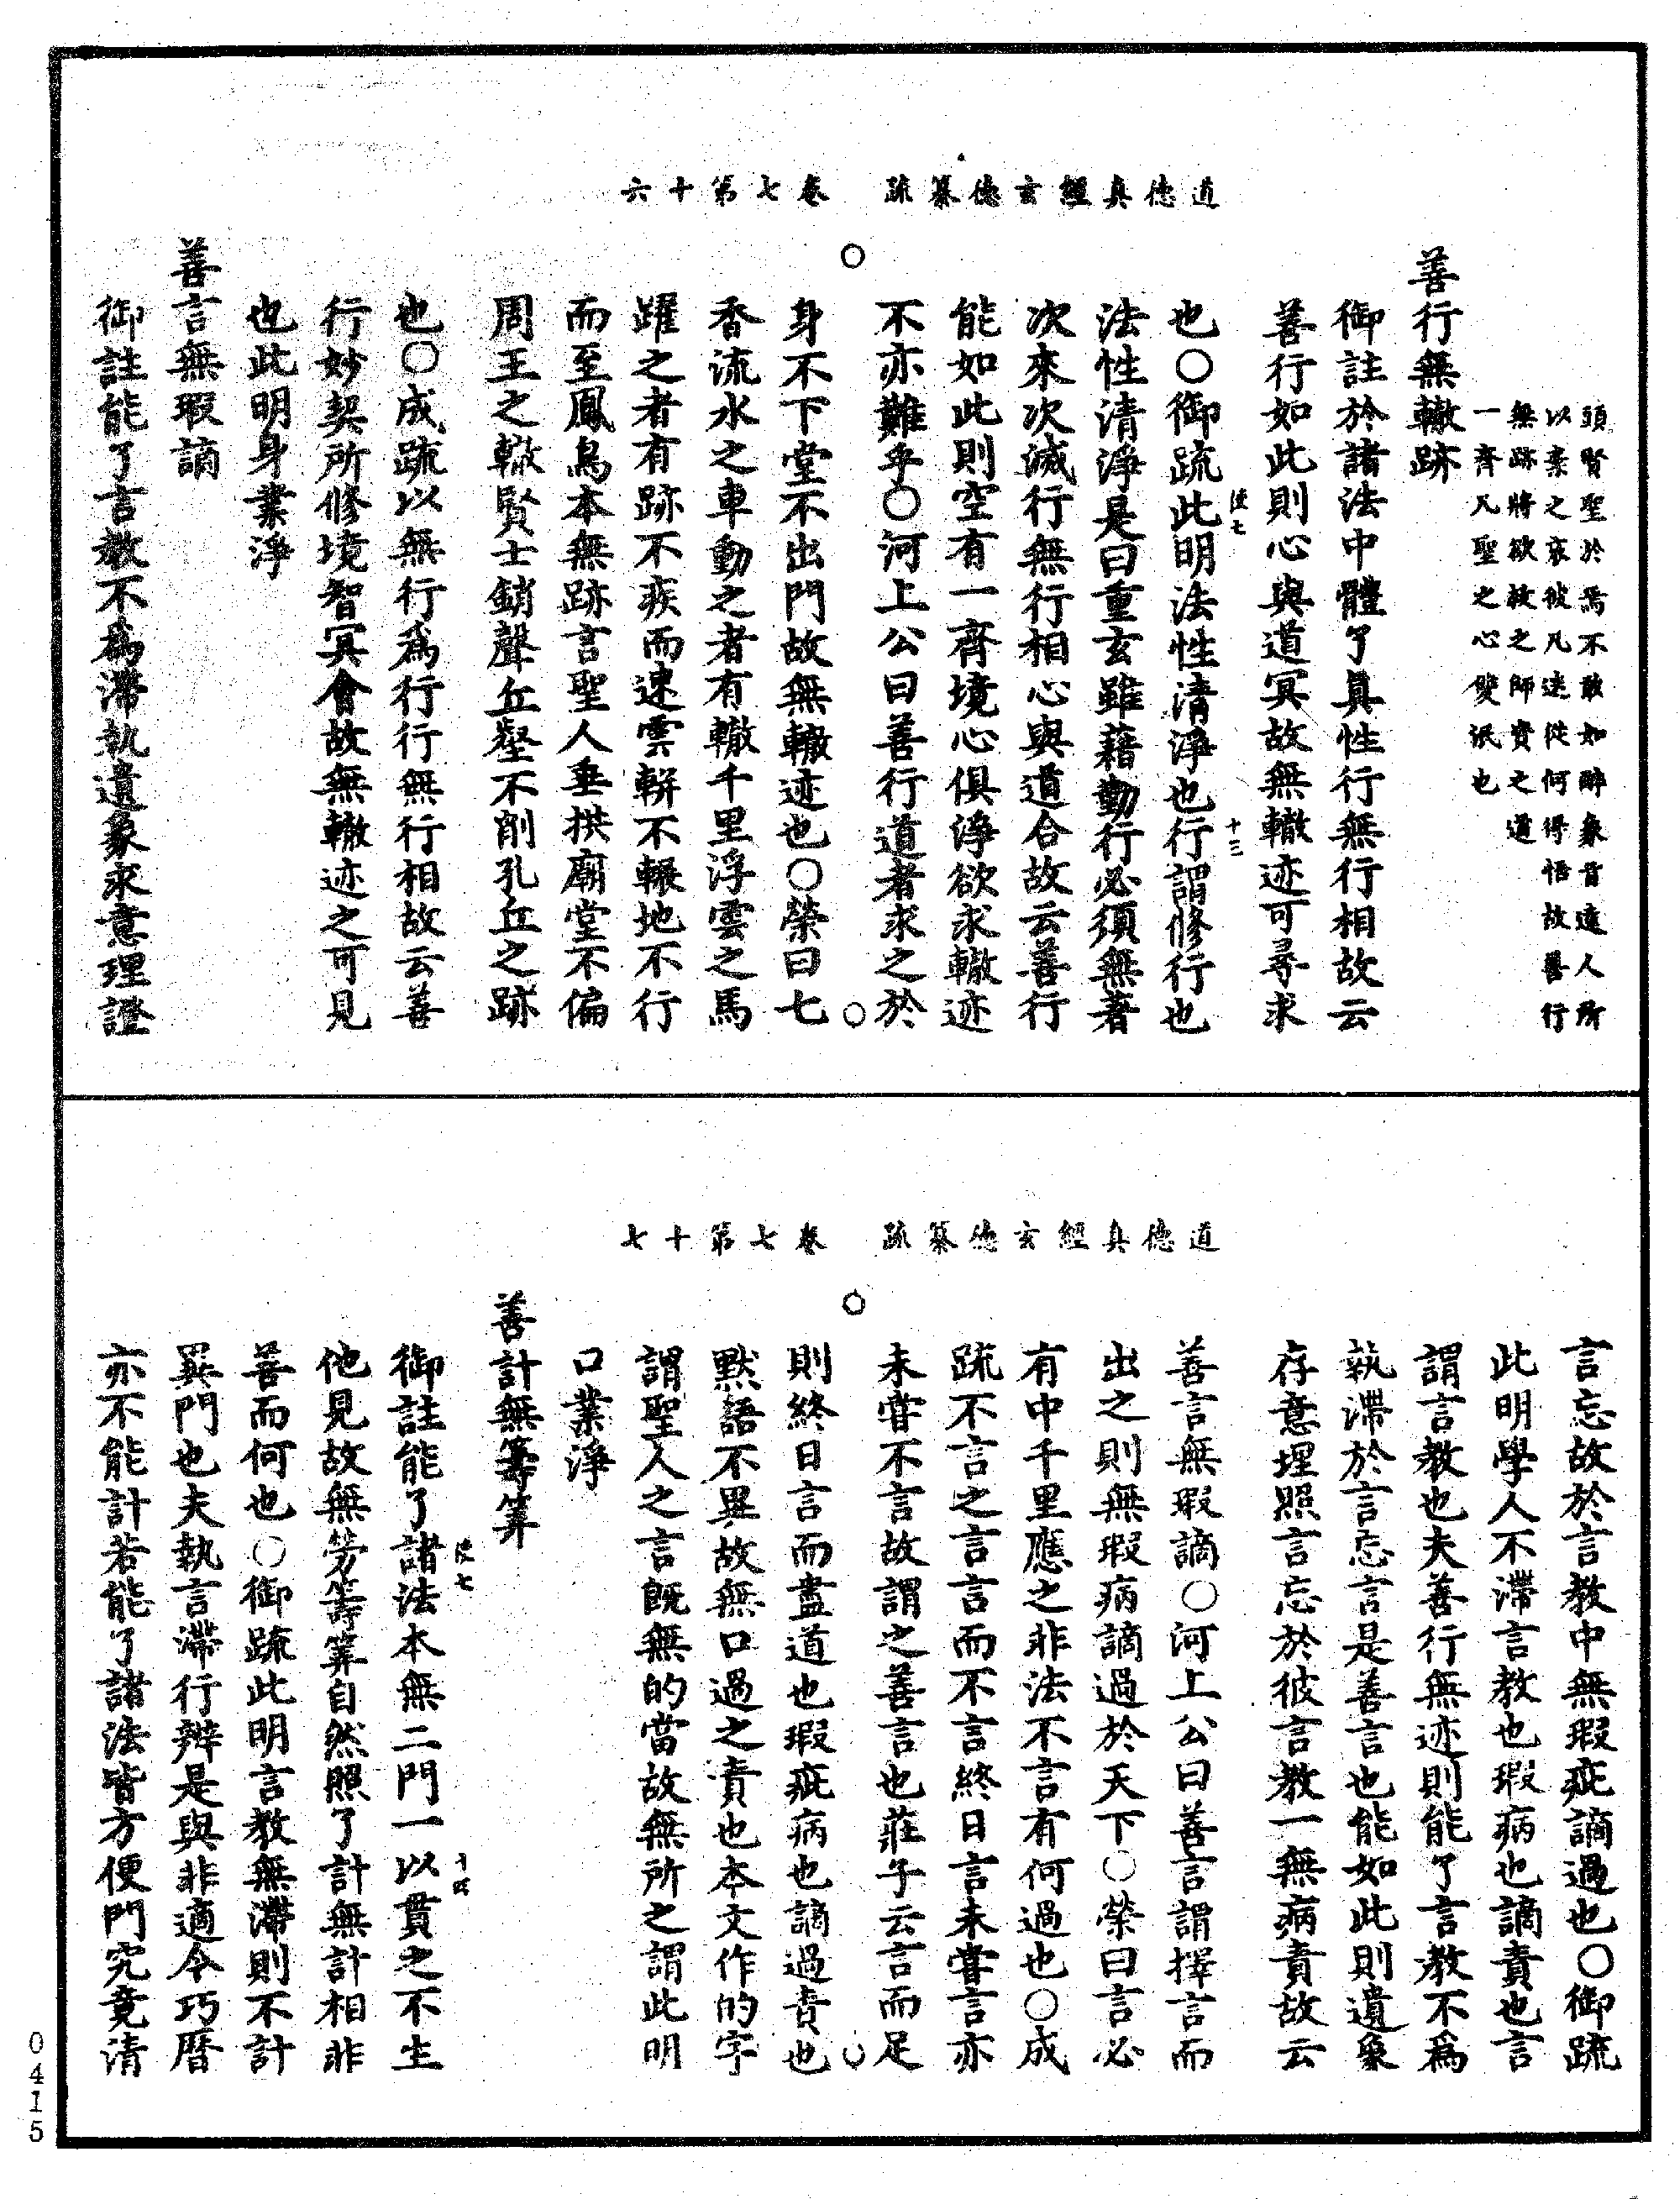 道德真經玄德纂疏　卷七第十六
頭賢聖於焉不敢如醉象昔遠人所
以棄之哀彼凡迷從何得悟故善行
無跡將欲救之師資之道
一齊凡聖之心雙泯也
善行無轍跡
御註於諸法中體了真性行無行相故云
善行如此則心與道冥故無轍迹可尋求
也○御疏此明法性清淨也行謂修行也
法性清淨是曰重玄雖藉勤行必須無著
次來次滅行無行相心與道合故云善行
能如此則空有一齊境心俱淨欲求轍迹
不亦難乎○河上公曰善行道者求之於
身不下堂不出門故無轍迹也○榮曰七
香流水之車動之者有轍千里浮雲之馬
躍之者有跡不疾而速雲軿不輾地不行
而至鳳鳥本無跡言聖人垂拱廟堂不偏
周王之轍賢士銷聲丘壑不削孔丘之跡
也○成疏以無行為行行無行相故云善
行妙契所修境智冥會故無轍迹之可見
也此明身業淨
善言無瑕謫
御註能了言教不為滯執遺象求意理證
道德真經玄德纂疏　卷七第十七
言忘故於言教中無瑕疵謫過也○御疏
此明學人不滯言教也瑕病也謫責也言
謂言教也夫善行無迹則能了言教不為
執滯於言忘言是善言也能如此則遺象
存意理照言忘於彼言教一無病責故云
善言無瑕謫○河上公曰善言謂擇言而
出之則無瑕病謫過於天下○榮曰言必
有中千里應之非法不言有何過也○成
疏不言之言言而不言終日言未嘗言亦
未嘗不言故謂之善言也莊子云言而足
則終日言而盡道也瑕疵病也謫過責也
默語不異故無口過之責也本文作的字
謂聖人之言既無的當故無所之謂此明
口業淨
善計無籌筭
御註能了諸法本無二門一以貫之不生
他見故無勞籌筭自然照了計無計相非
善而何也○御疏此明言教無滯則不計
異門也夫執言滯行辨是與非適令巧曆
亦不能計若能了諸法皆方便門究竟清
0415